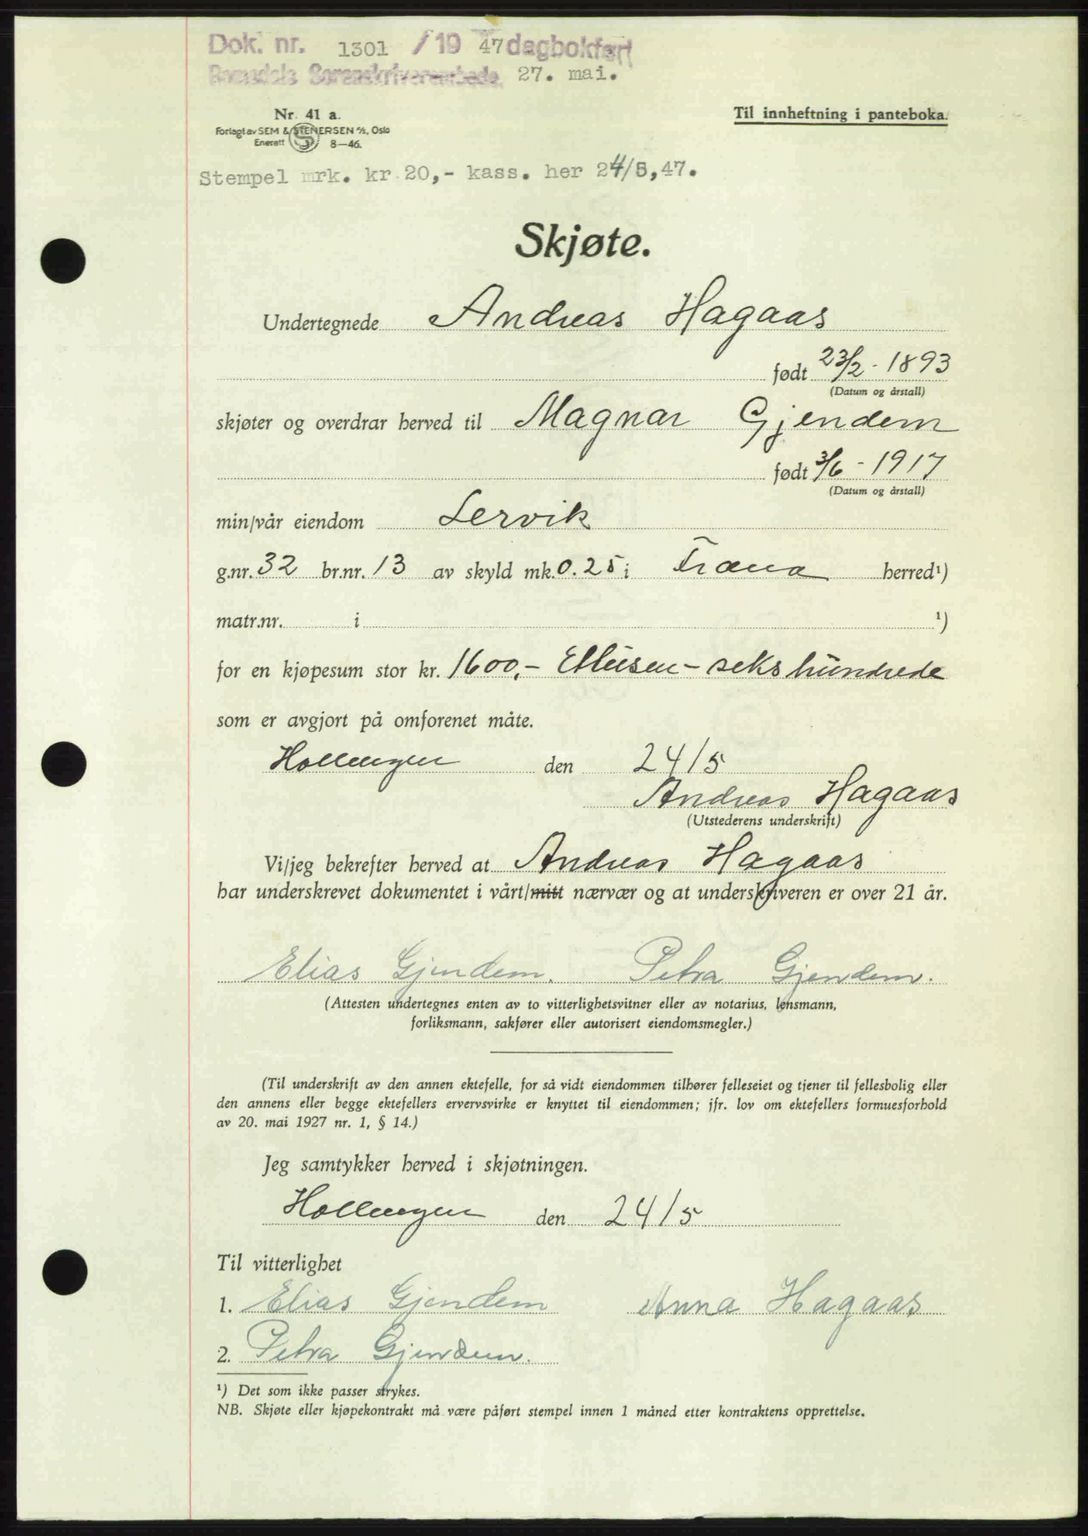 Dok. nr. 1301 /19 47 dagbokført
Romsdals Sorenskriverembede 27. mai.
Nr. 41 a.
Til innheftning i panteboka.
Forlagt av SEM & STENERSEN A/S, Oslo
Enerett 8—46.
Stempel mrk. kr 20,- kass. her 24/5,47.
Skjøte.
Undertegnede Andreas Hagaas
født 23/2 - 1893
(Datum og årstall)
skjøter og overdrar herved til Magnar Gjendem
født 3/6 - 1917
(Datum og årstall)
min/vår eiendom Lervik
g.nr. 32 br.nr. 13 av skyld mk. 0.25 i Fræna herred¹)
matr.nr. i ¹)
for en kjøpesum stor kr. 1600,- Ettusen - sekshundrede
som er avgjort på omforenet måte.
Hollingen den 24/5
Andreas Hagaas
(Utstederens underskrift)
Vi/jeg bekrefter herved at Andreas Hagaas
har underskrevet dokumentet i vårt/mitt nærvær og at underskriveren er over 21 år.
Elias Gjendem. Petra Gjendem.
(Attesten undertegnes enten av to vitterlighetsvitner eller av notarius, lensmann,
forliksmann, sakfører eller autorisert eiendomsmegler.)
(Til underskrift av den annen ektefelle, for så vidt eiendommen tilhører felleseiet og tjener til fellesbolig eller
den annens eller begge ektefellers ervervsvirke er knyttet til eiendommen; jfr. lov om ektefellers formuesforhold
av 20. mai 1927 nr. 1, § 14.)
Jeg samtykker herved i skjøtningen.
Hollingen den 24/5
Til vitterlighet
1. Elias Gjendem Anna Hagaas
2. Petra Gjendem.
¹) Det som ikke passer strykes.
NB. Skjøte eller kjøpekontrakt må være påført stempel innen 1 måned etter kontraktens opprettelse.